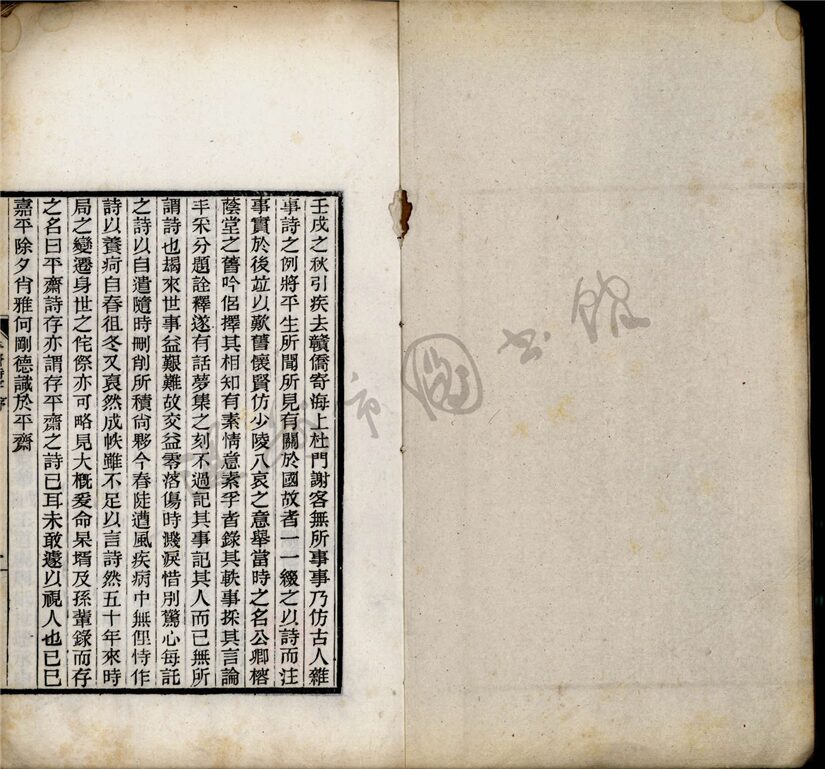 壬戌之秋引疾去贛僑寄海上杜門謝客無所事事乃仿古人雜
事詩之例將平生所聞所見有關於國故者一一綴之以詩而注
事實於後並以歎舊懷賢仿少陵八哀之意舉當時之名公卿榕
蔭堂之舊吟侶擇其相知有素情意素孚者錄其軼事採其言論
丰采分題詮釋遂有話夢集之刻不過記其事記其人而已無所
謂詩也朅來世事益艱難故交益零落傷時濺淚惜別驚心每託
之詩以自遣隨時刪削所積尙夥今春陡遭風疾病中無俚恃作
詩以養疴自春徂冬又裒然成帙雖不足以言詩然五十年來時
局之變遷身世之侘傺亦可略見大概爰命杲壻及孫輩錄而存
之名曰平齋詩存亦謂存平齋之詩已耳未敢遽以視人也己巳
嘉平除夕肖雅何剛德識於平齋
序
一
圖書館